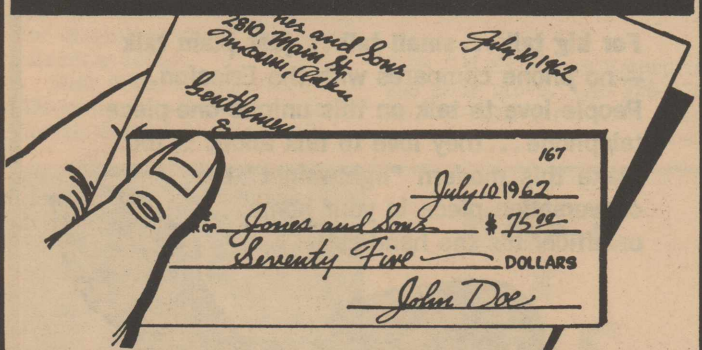 nes and Sons
2810 Main St
July 10, 1962
Gentlemen
167
July 10 1962
OF Jones and Sons $ 75 00
Seventy Five DOLLARS
John Doe